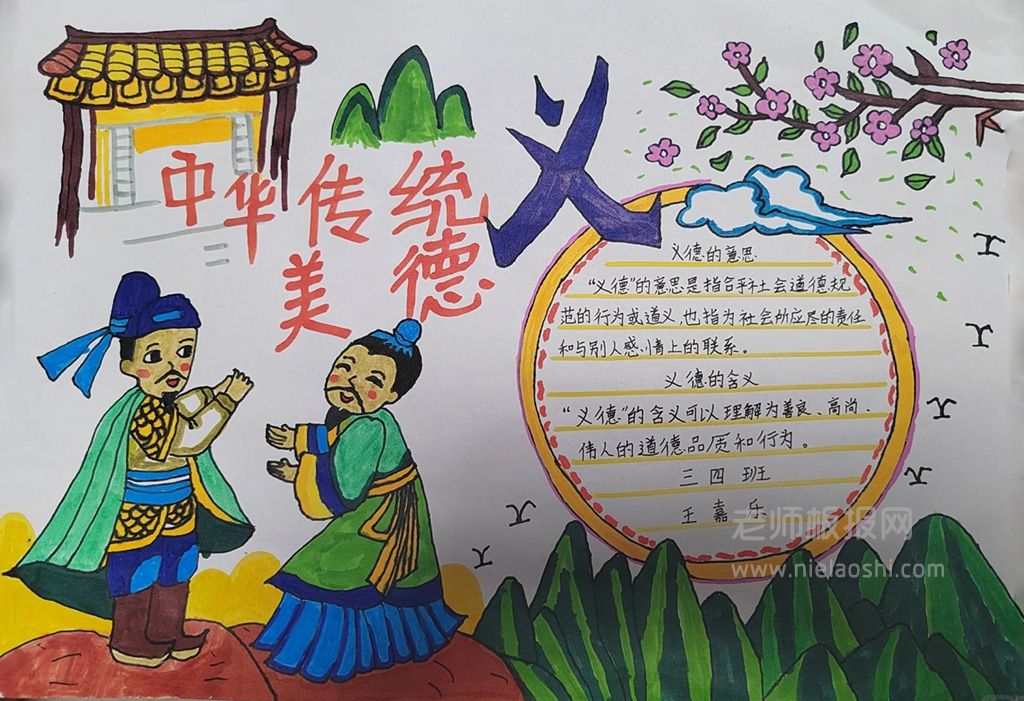 中华传统
美德
义
义德的意思
“义德”的意思是指合乎社会道德规
范的行为或道义,也指为社会所应尽的责任
和与别人感情上的联系。
义德的含义
“义德”的含义可以理解为善良、高尚、
伟人的道德品质和行为。
三四班
王嘉乐
老师板报网
www.nielaoshi.com